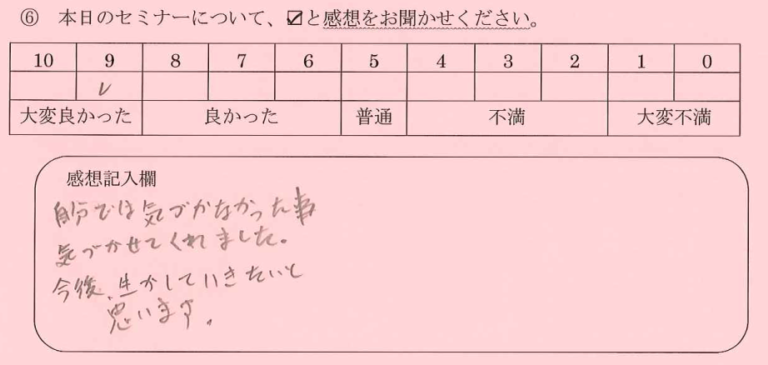 ⑥ 本日のセミナーについて、☑と感想をお聞かせください。
10 9 8 7 6 5 4 3 2 1 0
✓
大変良かった 良かった 普通 不満 大変不満
感想記入欄
自分では気づかなかった事
気づかせてくれました。
今後、生かしていきたいと
思います。